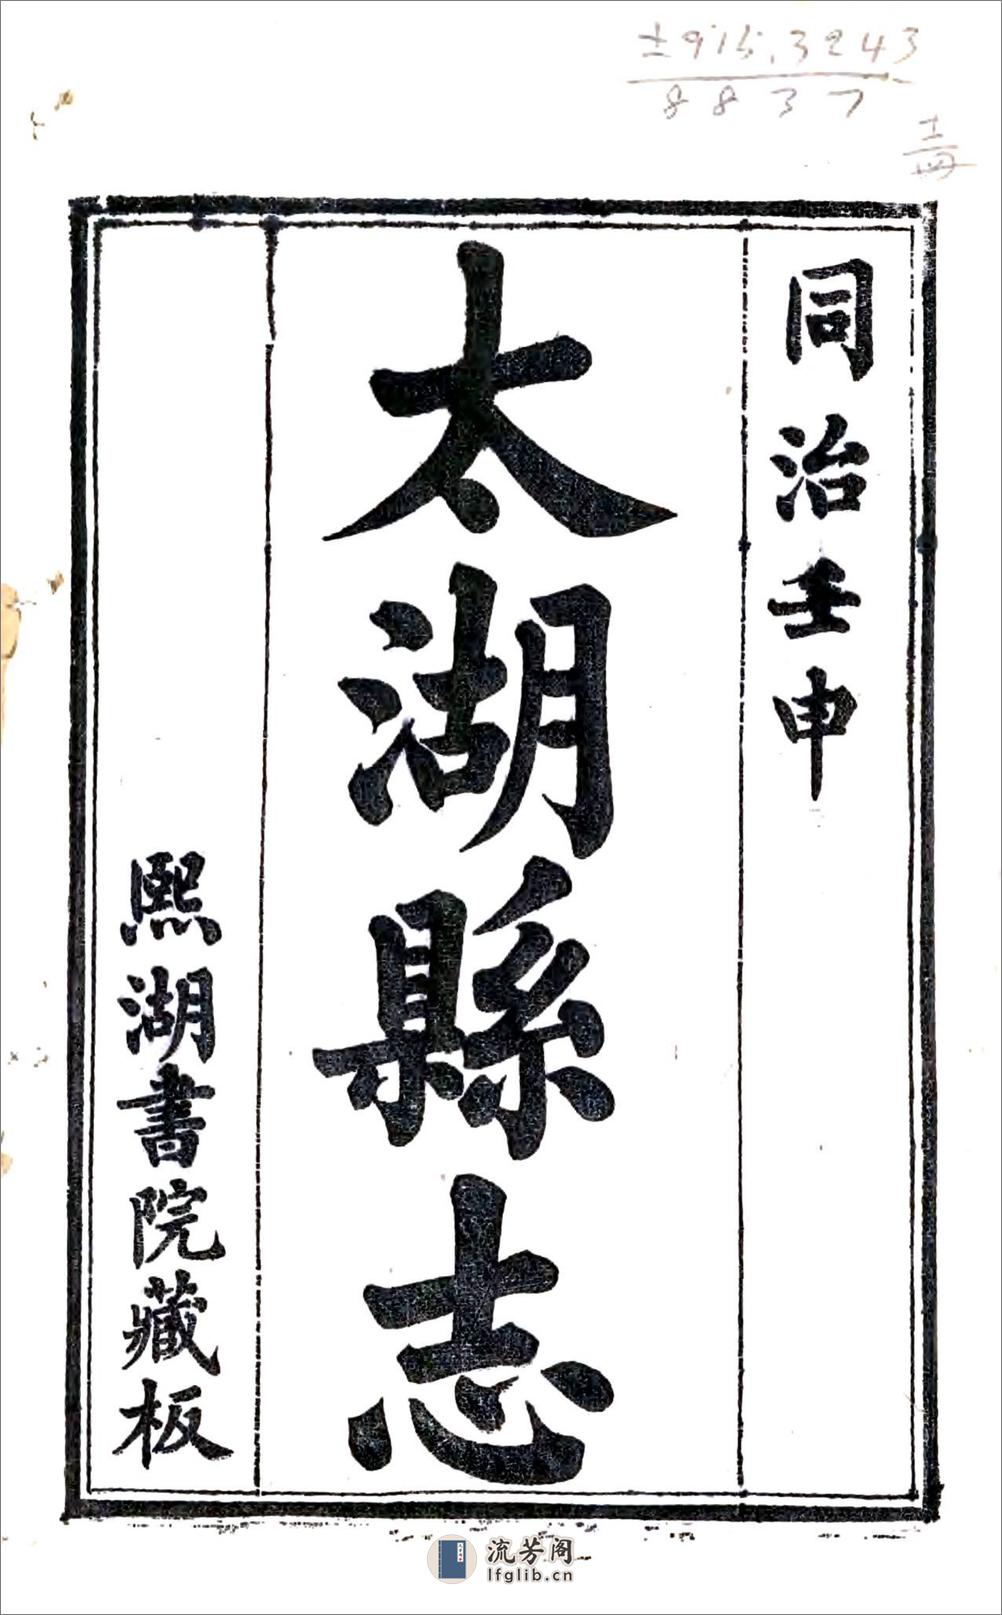 土915.3243
8837
十四
同治壬申
太湖縣志
熙湖書院藏板
流芳阁
lfglib.cn